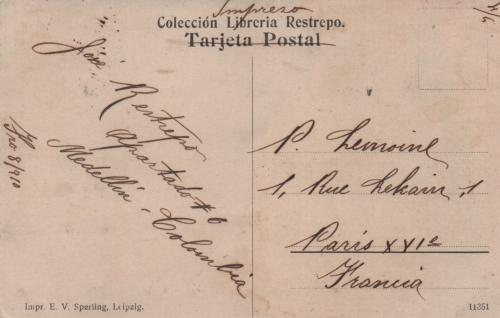 Impreso
Colección Libreria Restrepo.
Tarjeta Postal
José Restrepo
Apartado # 6
Medellín - Colombia
P. Lemoine
1, Rue Lekain, 1
París XVIe
Francia
Impr. E. V. Sperling, Leipzig.
11351